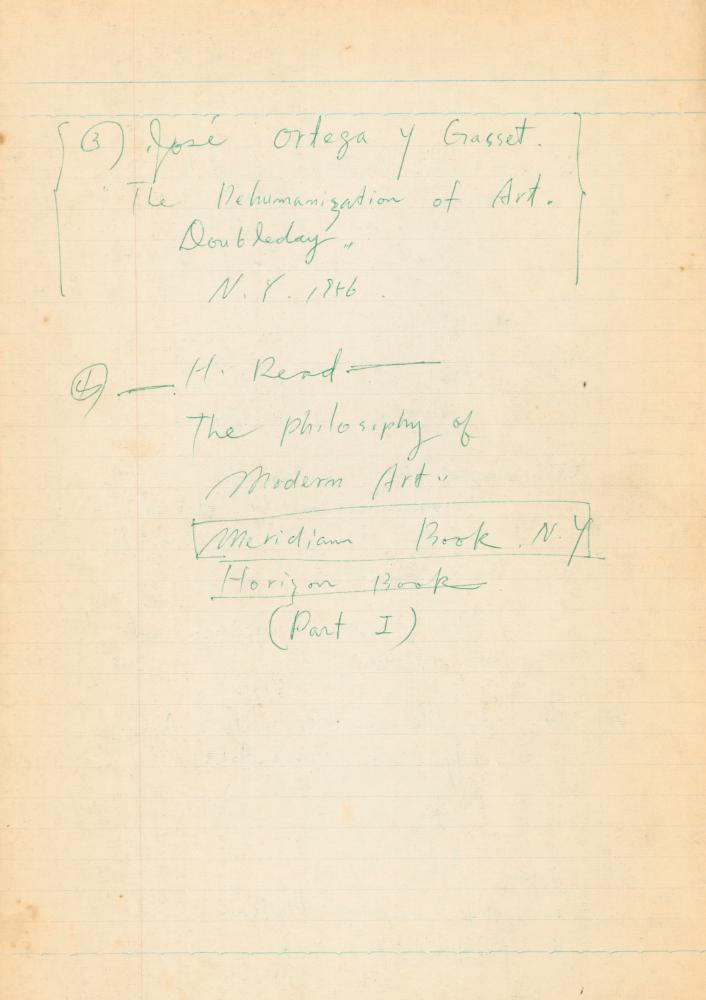 ③ José Ortega y Gasset.
"The Dehumanization of Art.
Doubleday"
N.Y. 1956.
④ — H. Read —
The philosiphy of
Modern Art"
Meridiam Book. N.Y
Horizon Book
(Part I)